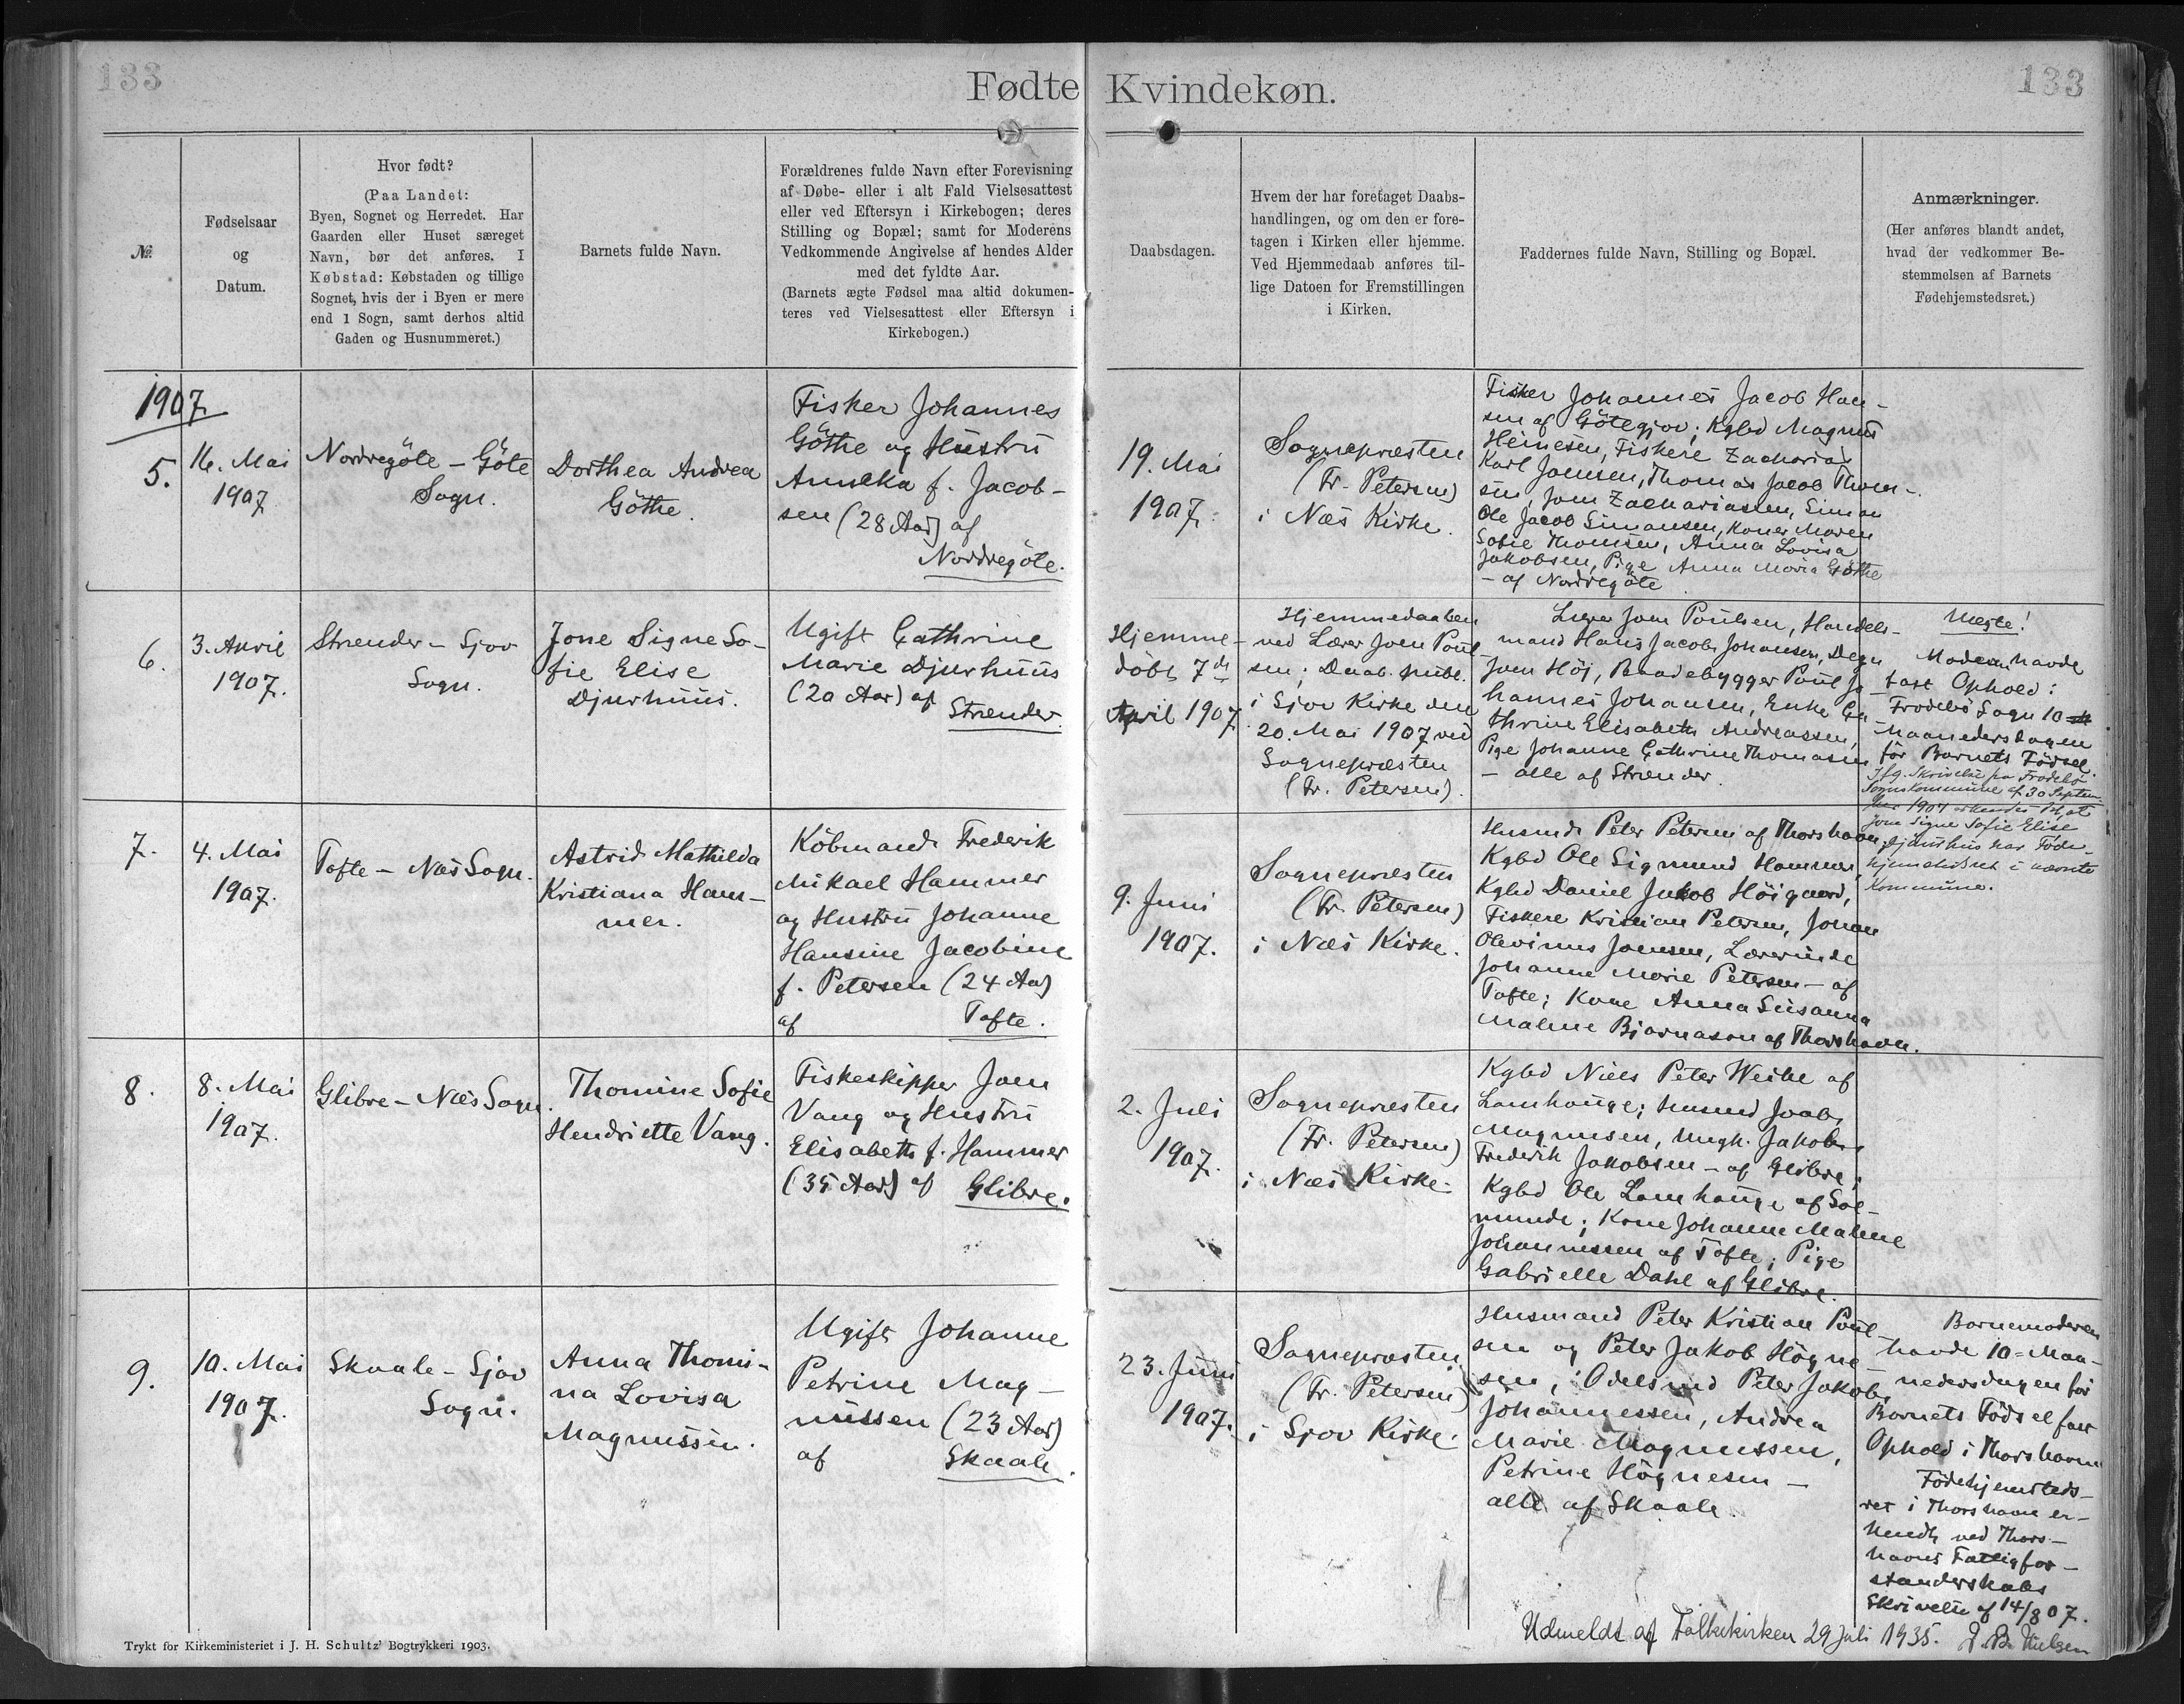 133
Fødte Kvindekøn.
133
№
Fødselsaar
og
Datum.
Hvor født?
(Paa Landet:
Byen, Sognet og Herredet. Har
Gaarden eller Huset særeget
Navn, bør det anføres. I
Købstad: Købstaden og tillige
Sognet, hvis der i Byen er mere
end 1 Sogn, samt derhos altid
Gaden og Husnummeret.)
Barnets fulde Navn.
Forældrenes fulde Navn efter Forevisning
af Døbe- eller i alt Fald Vielsesattest
eller ved Eftersyn i Kirkebogen; deres
Stilling og Bopæl; samt for Moderens
Vedkommende Angivelse af hendes Alder
med det fyldte Aar.
(Barnets ægte Fødsel maa altid dokumen-
teres ved Vielsesattest eller Eftersyn i
Kirkebogen.)
Daabsdagen.
Hvem der har foretaget Daabs-
handlingen, og om den er fore-
tagen i Kirken eller hjemme.
Ved Hjemmedaab anføres til-
lige Datoen for Fremstillingen
i Kirken.
Faddernes fulde Navn, Stilling og Bopæl.
Anmærkninger.
(Her anføres blandt andet,
hvad der vedkommer Be-
stemmelsen af Barnets
Fødehjemstedsret.)
1907
5.
16. Mai
1907
Nordregöte - Göte
Sogn.
Dorthea Andrea
Göthe.
Fisker Johannes
Göthe og Hustru
Annika f. Jacob-
sen (28 Aar) af
Nordregöte.
19. Mai
1907.
Sognepræsten
(Fr. Petersen)
i Næs Kirke.
Fisker Johannes Jacob Han-
sen af Götegjov; Kgbd Magnus
Heinesen, Fiskere Zacharias
Karl Joensen, Thomas Jacob Thom-
sen, Joen Zachariassen, Simon
Ole Jacob Simonsen, Koner Maren
Sofie Thomsen, Anna Lovisa
Jakobsen, Pige Anna Maria Göthe
- af Nordregöte
6.
3. April
1907.
Strænder - Sjov
Sogn.
Jone Signe So-
fie Elise
Djurhuus.
Ugift Cathrine
Marie Djurhuus
(20 Aar) af
Strænder.
Hjemme-
döbt 7de
April 1907.
Hjemmedaaben
ved Lærer Joen Poul-
sen; Daab. publ.
i Sjov Kirke den
20. Mai 1907 ved
Sognepræsten
(Fr. Petersen).
Lærer Joen Poulsen, Handels-
mand Hans Jacob Johansen, Degn
Joen Höj, Baadebygger Poul Jo-
hannes Johansen, Enke Ca-
thrine Elisabeth Andreassen,
Pige Johanne Cathrine Thomasen
- alle af Strænder.
Uægte!
Moderen havde
fast Ophold i
Frodebö Sogn 10
Maanedersdagen
för Barnets Födsel.
Ifg. Skrivelse fra Frodebö
Sognskommune af 30 Septem-
ber 1907 erkendes det, at
Jone Signe Sofie Elise
Djurhuus har Föde-
hjemstedsret i nævnte
Kommune.
7.
4. Mai
1907.
Tofte - Næs Sogn.
Astrid Mathilda
Kristiana Ham-
mer.
Köbmand Frederik
Mikael Hammer
og Hustru Johanne
Hansine Jacobine
f. Petersen (24 Aar)
af Tofte.
9. Juni
1907.
Sognepræsten
(Fr. Petersen)
i Næs Kirke.
Husmd. Peter Petersen af Thorshavn,
Kgbd Ole Sigmund Hammer,
Kgbd Daniel Jakob Höigaard,
Fiskere Kristian Petersen, Johan
Olevinus Joensen, Lærerinde
Johanne Marie Petersen - af
Tofte; Kone Anna Susanna
Malene Bjarnason af Thorshavn.
8.
8. Mai
1907.
Glibre - Næs Sogn.
Thomine Sofie
Hendriette Vang.
Fiskeskipper Joen
Vang og Hustru
Elisabeth f. Hammer
(35 Aar) af Glibre.
2. Juli
1907.
Sognepræsten
(Fr. Petersen)
i Næs Kirke.
Kgbd Niels Peter Weihe af
Lamhauge; Husmd Joab
Magnusen, Ungk. Jakob
Frederik Jakobsen - af Glibre;
Kgbd Ole Lamhauge af Sol-
munde; Kone Johanne Malene
Johannessen af Tofte; Pige
Gabrielle Dahl af Glibre.
9.
10. Mai
1907.
Skaale - Sjov
Sogn.
Anna Thomi-
na Lovisa
Magnussen.
Ugift Johanne
Petrine Mag-
nussen (23 Aar)
af Skaale.
23. Juni
1907.
Sognepræsten
(Fr. Petersen)
i Sjov Kirke.
Husmænd Peter Kristian Poul-
sen og Peter Jakob Högne-
sen, Odelsmd Peter Jakob
Johannessen, Andrea
Marie Magnussen,
Petrine Högnesen -
alle af Skaale.
Barnemoderen
havde 10-Maa-
nedersdagen för
Barnets Födsel fast
Ophold i Thorshavn
Födehjemsteds-
ret i Thorshavn er-
kendt ved Thors-
havns Fattigfor-
standerskabs
Skrivelse af 14/8 07.
Udmeldt af Folkekirken 29 juli 1935. J. B. Nielsen
Trykt for Kirkeministeriet i J. H. Schultz' Bogtrykkeri 1903.